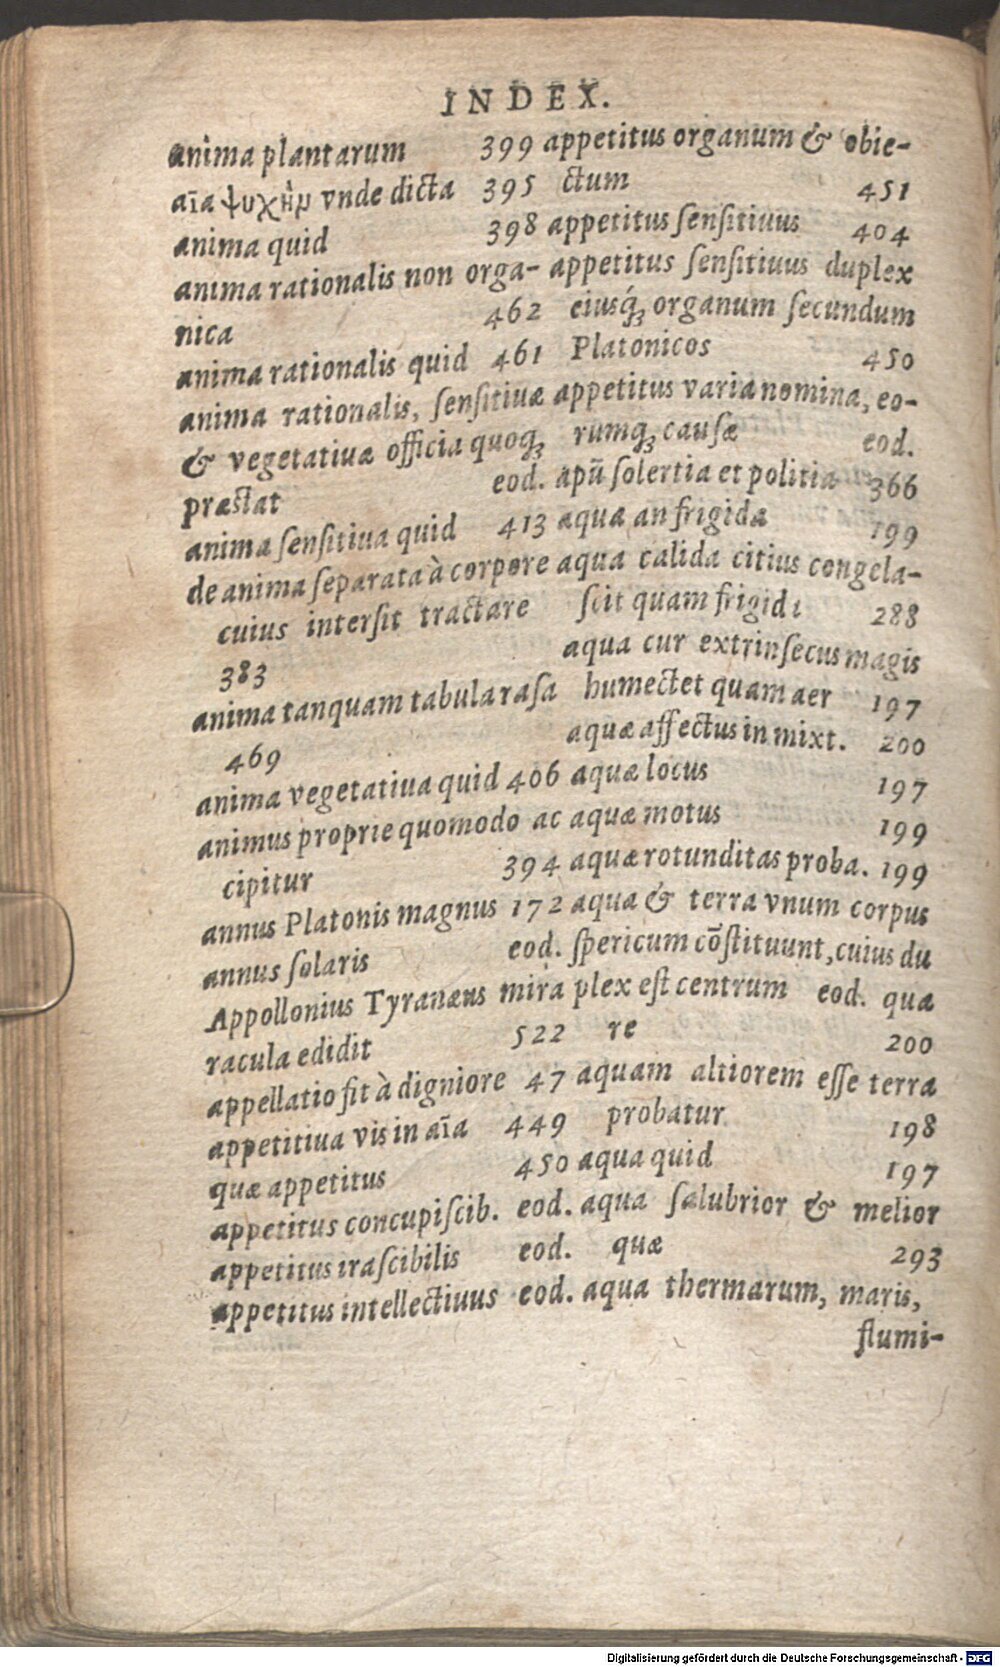 INDEX.
anima plantarum 399
aīa ψυχὴν vnde dicta 395
anima quid 398
anima rationalis non orga-
nica 462
anima rationalis quid 461
anima rationalis, ſenſitiuæ
& vegetatiuæ officia quoq;
præſtat eod.
anima ſenſitiua quid 413
de anima ſeparata à corpore
cuius interſit tractare
383
anima tanquam tabula raſa
469
anima vegetatiua quid 406
animus proprie quomodo ac
cipitur 394
annus Platonis magnus 172
annus ſolaris eod.
Appollonius Tyranæus mira
racula edidit 522
appellatio fit à digniore 47
appetitiua vis in aīa 449
quæ appetitus 450
appetitus concupiſcib. eod.
appetitus iraſcibilis eod.
appetitus intellectiuus eod.
appetitus organum & obie-
ctum 451
appetitus ſenſitiuus 404
appetitus ſenſitiuus duplex
eiusq́; organum ſecundum
Platonicos 450
appetitus varia nomina, eo-
rumq; cauſæ eod.
apū ſolertia et politia 366
aqua an frigida 199
aqua calida citius congela-
ſcit quam frigida 288
aqua cur extrinſecus magis
humectet quam aer 197
aquæ affectus in mixt. 200
aquæ locus 197
aquæ motus 199
aquæ rotunditas proba. 199
aqua & terra vnum corpus
ſpericum cōſtituunt, cuius du
plex eſt centrum eod. quæ
re 200
aquam altiorem eſſe terra
probatur 198
aqua quid 197
aqua ſalubrior & melior
quæ 293
aqua thermarum, maris,
flumi-
Digitalisierung gefördert durch die Deutsche Forschungsgemeinschaft - DFG